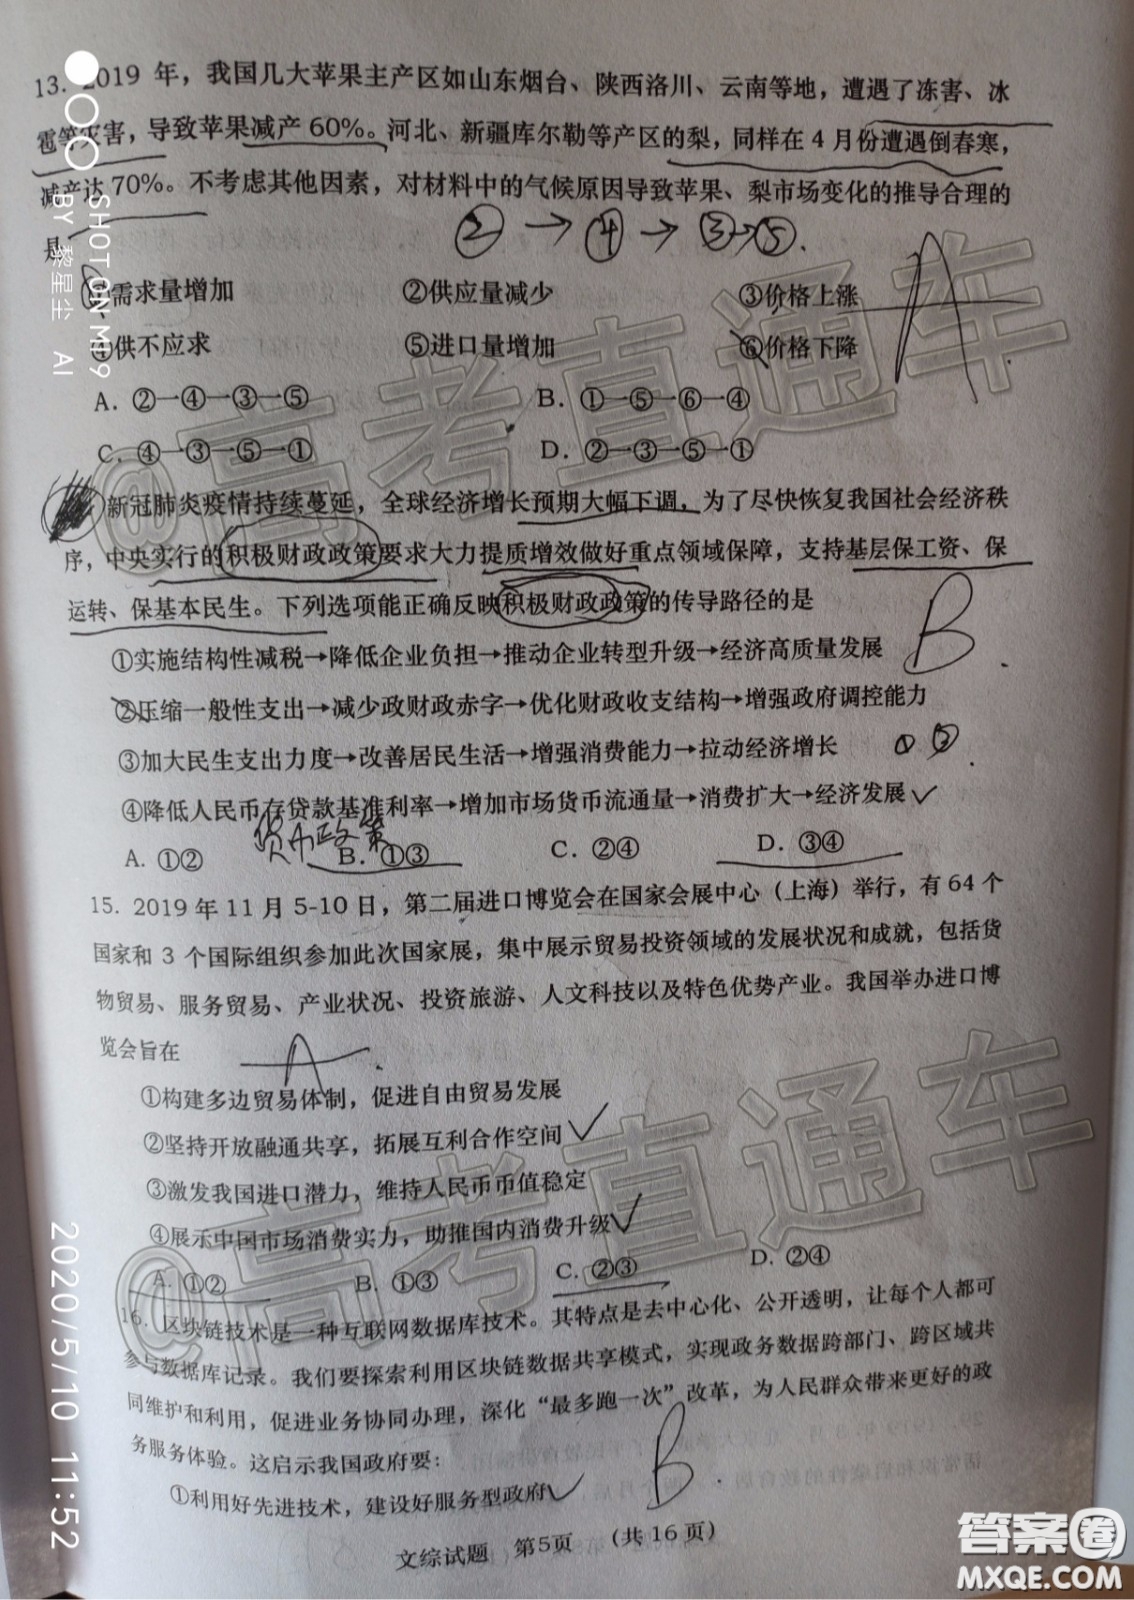 13. 2019 年，我国几大苹果主产区如山东烟台、陕西洛川、云南等地，遭遇了冻害、冰
雹等灾害，导致苹果减产 60%。河北、新疆库尔勒等产区的梨，同样在 4 月份遭遇倒春寒，
减产达 70%。不考虑其他因素，对材料中的气候原因导致苹果、梨市场变化的推导合理的
是
②→④→③→⑤.
①需求量增加 ②供应量减少 ③价格上涨
④供不应求 ⑤进口量增加 ⑥价格下降
A
A．②—④—③—⑤ B．①—⑤—⑥—④
C．④—③—⑤—① D．②—③—⑤—①
新冠肺炎疫情持续蔓延，全球经济增长预期大幅下调，为了尽快恢复我国社会经济秩
序，中央实行的积极财政政策要求大力提质增效做好重点领域保障，支持基层保工资、保
运转、保基本民生。下列选项能正确反映积极财政政策的传导路径的是
B
①实施结构性减税→降低企业负担→推动企业转型升级→经济高质量发展
②压缩一般性支出→减少政财政赤字→优化财政收支结构→增强政府调控能力
③加大民生支出力度→改善居民生活→增强消费能力→拉动经济增长
④降低人民币存贷款基准利率→增加市场货币流通量→消费扩大→经济发展
货币政策
A. ①② B. ①③ C. ②④ D. ③④
15. 2019 年 11 月 5-10 日，第二届进口博览会在国家会展中心（上海）举行，有 64 个
国家和 3 个国际组织参加此次国家展，集中展示贸易投资领域的发展状况和成就，包括货
物贸易、服务贸易、产业状况、投资旅游、人文科技以及特色优势产业。我国举办进口博
览会旨在
A
①构建多边贸易体制，促进自由贸易发展
②坚持开放融通共享，拓展互利合作空间
③激发我国进口潜力，维持人民币币值稳定
④展示中国市场消费实力，助推国内消费升级
A. ①② B. ①③ C. ②③ D. ②④
16. 区块链技术是一种互联网数据库技术。其特点是去中心化、公开透明，让每个人都可
参与数据库记录。我们要探索利用区块链数据共享模式，实现政务数据跨部门、跨区域共
同维护和利用，促进业务协同办理，深化“最多跑一次”改革，为人民群众带来更好的政
务服务体验。这启示我国政府要：
B
①利用好先进技术，建设好服务型政府
文综试题 第5页 （共 16 页）
SHOT ON MI 9
BY 黎星尘 AI
2020/5/10 11:52
@高考直通车
@高考直通车
答案圈
MXQE.COM